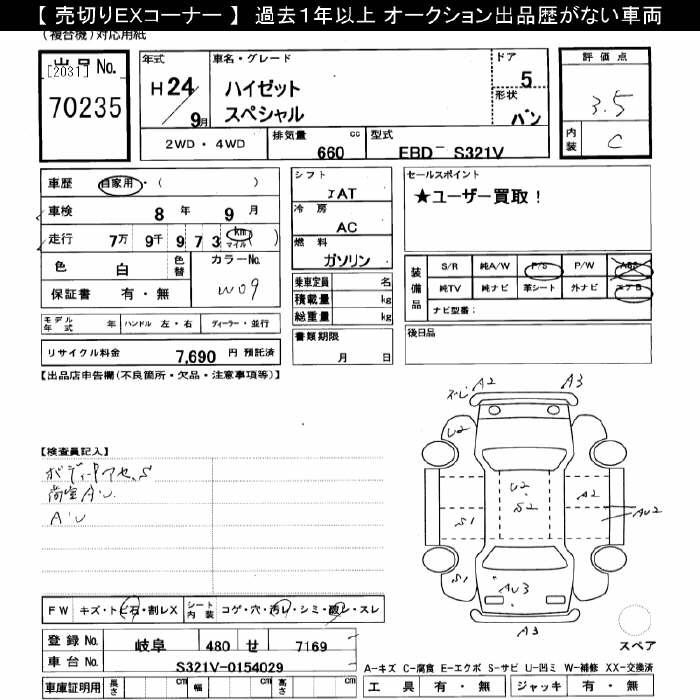 【 売切りEXコーナー 】 過去1年以上 オークション出品歴がない車両
(複合機)対応用紙
出品 No.
[2031]
70235
年式
H 24/9月
車名・グレード
ハイゼット
スペシャル
ドア
5
形状
バン
評価点
3.5
内装
C
2WD・4WD
排気量 660 cc
型式 EBD- S321V
車歴 自家用・( )
車検 8 年 9 月
走行 7万 9千 9 7 3 km マイル ( )
色 白 色替 カラーNo.
W09
保証書 有・無
シフト
IAT
冷房
AC
燃料
ガソリン
乗車定員 名
積載量 kg
総重量 kg
書類期限
月 日
セールスポイント
★ユーザー買取!
装備品
S/R 純A/W P/S P/W ABS
純TV 純ナビ 革シート 外ナビ エアB
ナビ型番:
後日品
モデル年式 年 ハンドル 左・右 ディーラー・並行
リサイクル料金 7,690 円 預託済
【出品店申告欄(不良箇所・欠品・注意事項等)】
【検査員記入】
荷室AU
AU
A2
A3
U2
U2
S2
A2
AU2
S1
S1
AU3
A3
スペア
FW キズ・トビ石・割レX シート内装 コゲ・穴・汚レ・シミ・破レ・スレ
登録 No. 岐阜 480 せ 7169
車台 No. S321V-0154029
車庫証明用 長さ cm 幅 cm 高さ cm
A-キズ C-腐食 E-エクボ S-サビ U-凹ミ W-補修 XX-交換済
工具 有・無 ジャッキ 有・無